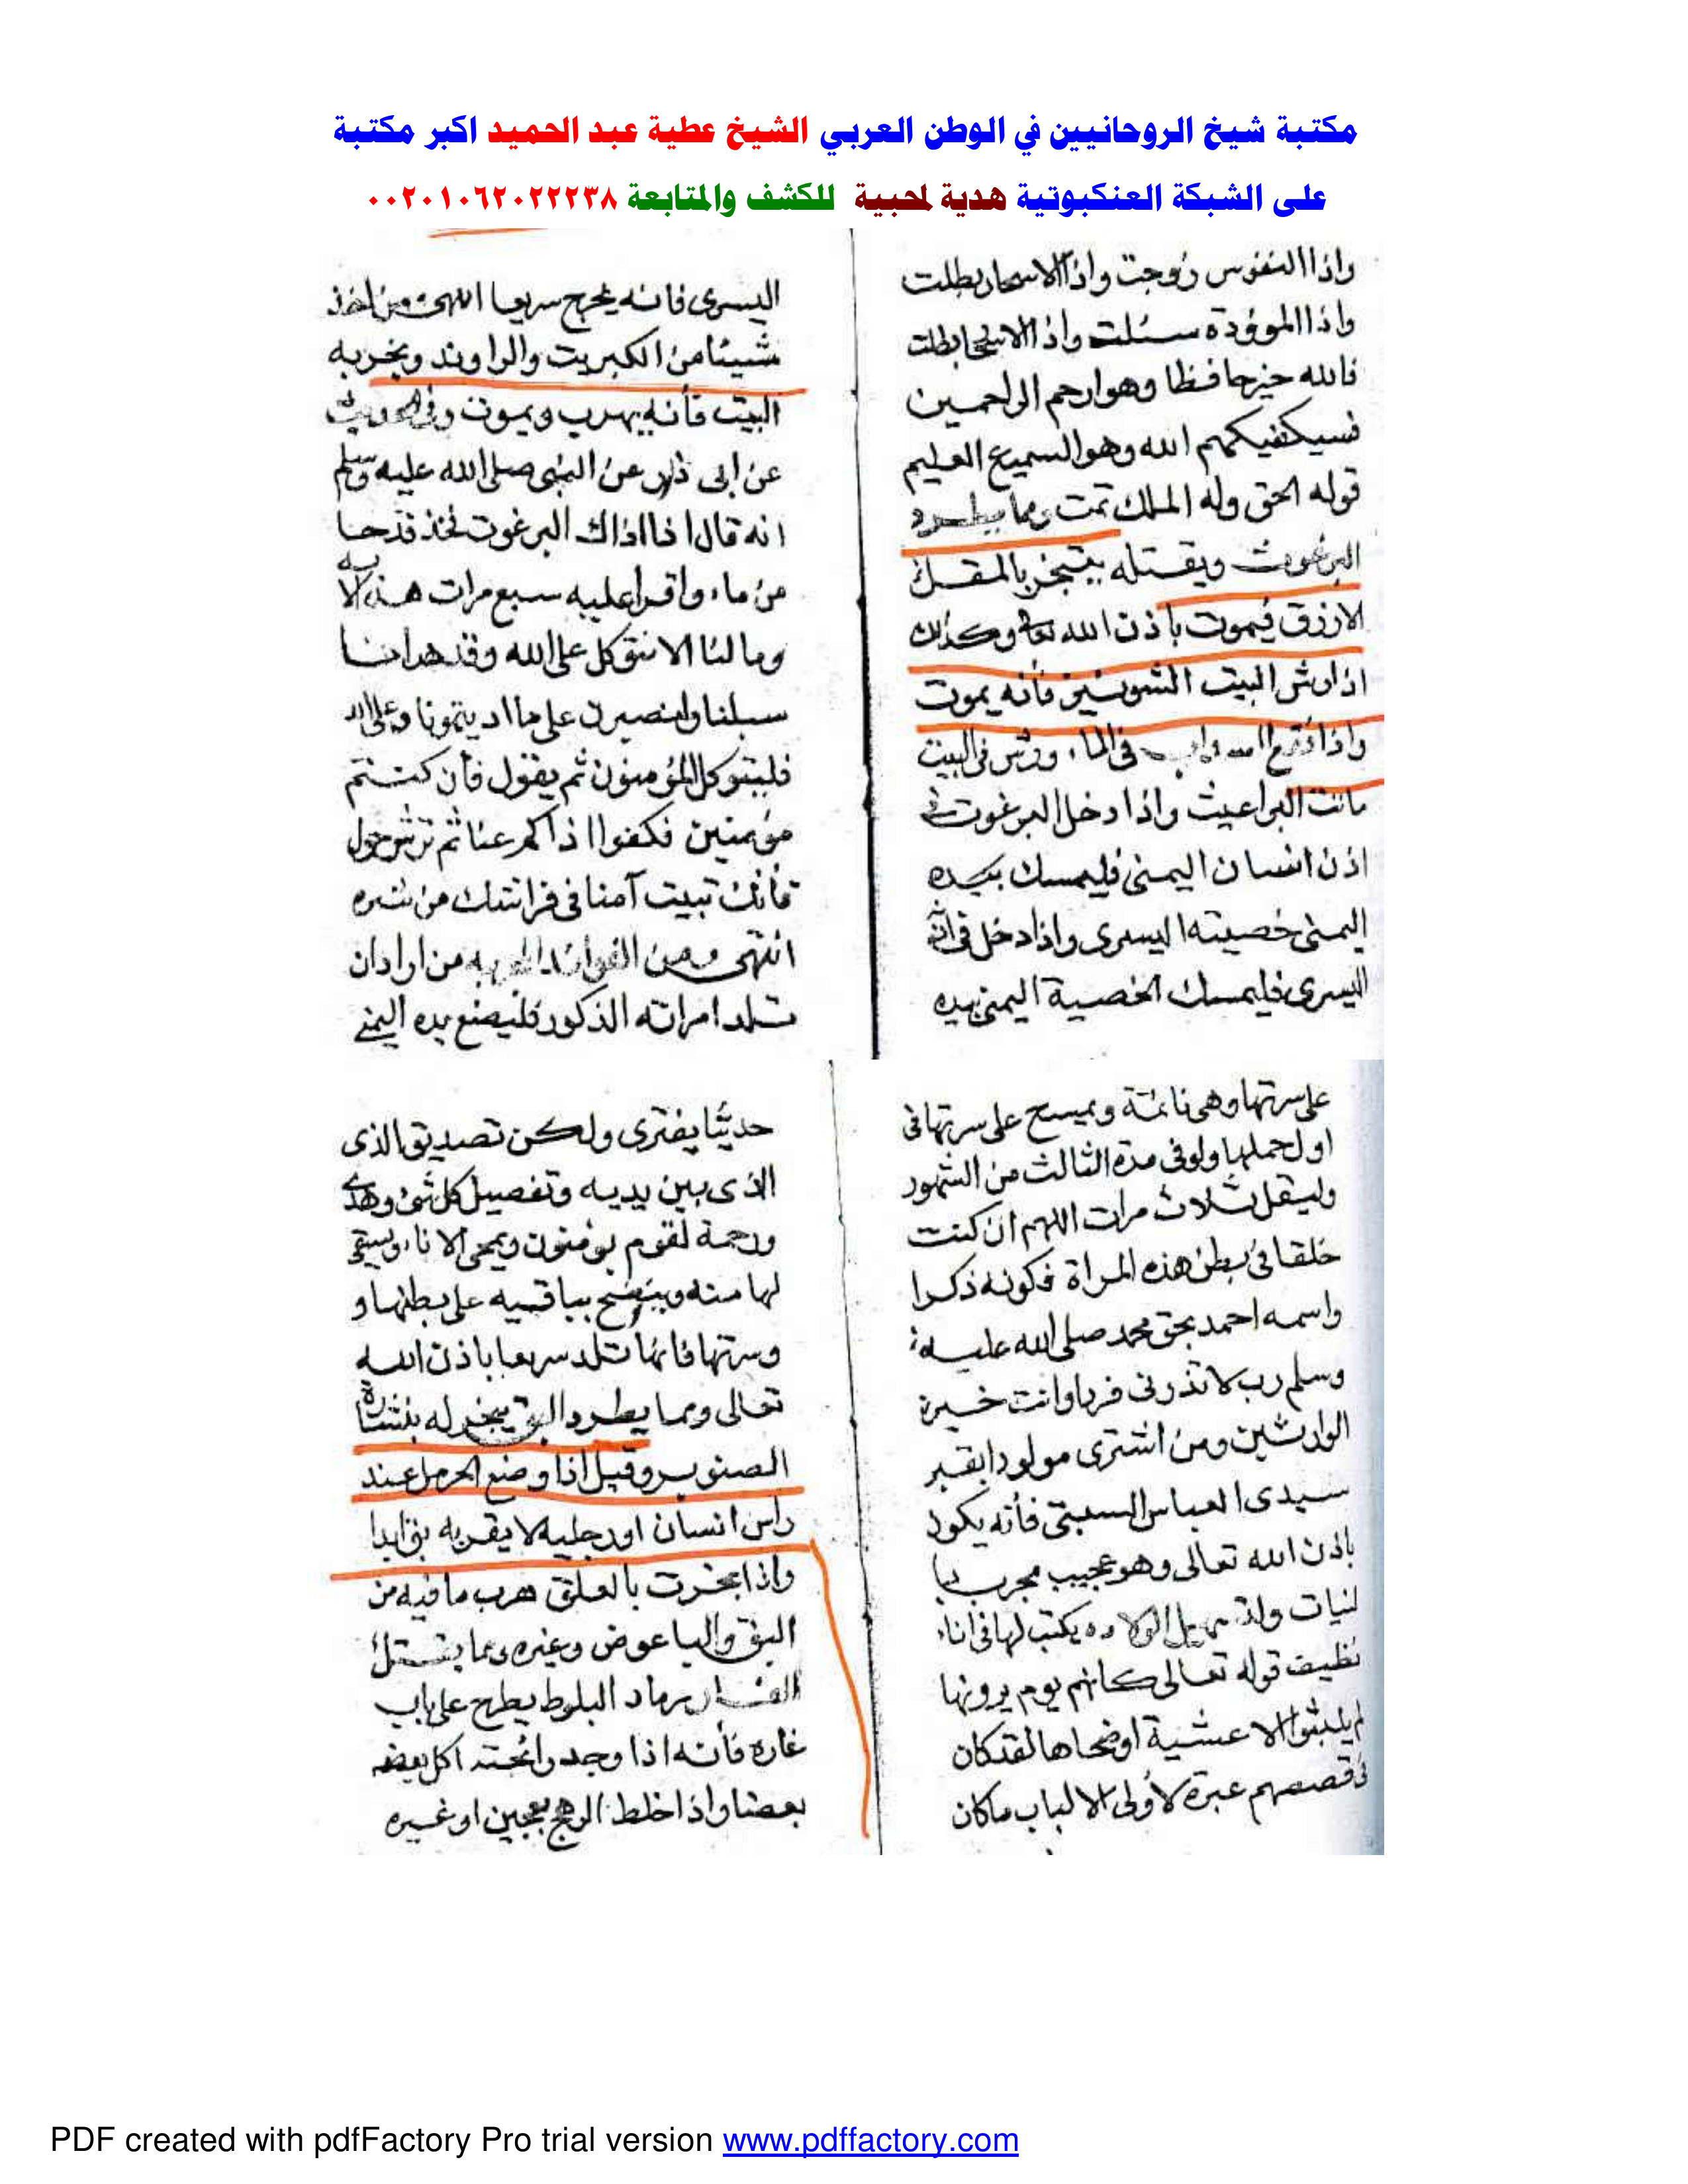 مكتبة شيخ الروحانيين في الوطن العربي الشيخ عطية عبد الحميد اكبر مكتبة
على الشبكة العنكبوتية هدية لمحبية للكشف والمتابعة ٠٠٢٠١٠٦٢٠٢٢٢٣٨
واذا النفوس زوجت واذا الاسحار بطلت
واذا الموؤدة سئلت واذا بطلت
فالله خير حافظا وهو ارحم الراحمين
فسيكفيكهم الله وهو السميع العليم
قوله الحق وله الملك تمت ومما يطرد
البرغوث ويقتله يتبخر بالمقل
الازرق فيموت باذن الله تعا وكذلك
اذا رش البيت الشونيز فأنه يموت
واذا في الماء ورش في البيت
ماتت البراغيث واذا دخل البرغوث في
اذن انسان اليمنى فليمسك بيده
اليمنى خصيته اليسرى واذا دخل في اذنه
اليسرى فليمسك الخصية اليمنى بيده
اليسرى فانه يخرج سريعا انتهى من اخذ
شيئا من الكبريت والراوند وبخر به
البيت فأنه يهرب ويموت وفي الحديث
عن ابى ذر عن النبي صلى الله عليه وسلم
انه قال اذا اذاك البرغوث فخذ قدحا
من ماء واقرا عليه سبع مرات هذه الاية
وما لنا الا نتوكل على الله وقد هدانا
سبلنا ولنصبرن على ما اذيتمونا وعلى الله
فليتوكل المؤمنون ثم يقول فأن كنتم
مؤمنين فكفوا اذاكم عنا ثم ترش حول
فأنك تبيت آمنا في فراشك من شره
انتهى ومن الفوائد من اراد ان
تلد امراته الذكور فليضع يده اليمنى
على سرتها وهى نائمة ويمسح على سرتها في
اول حملها ولو في مدة الثالث من الشهور
وليقل ثلاث مرات اللهم ان كنت
خلقا في بطن هذه المراة فكونه ذكرا
واسمه احمد بحق محمد صلى الله عليه
وسلم رب لا تذرنى فردا وانت خير
الوارثين ومن اشترى مولودا بقبر
سيدى العباس السبتى فأنه يكون
باذن الله تعالى وهو عجيب مجرب
يكتب لها في اناء
نظيف قوله تعالى كانهم يوم يرونها
لم يلبثوا الا عشية او ضحاها لقد كان
في قصصهم عبرة لأولى الالباب ما كان
حديثا يفترى ولكن تصديق الذى
الذى بين يديه وتفصيل كل شئ وهدى
ورحمة لقوم يؤمنون ويمحى الاناء ويسقى
لها منه وينضح بباقيه على بطنها و
وسرتها فانها تلد سريعا باذن الله
تعالى ومما يطرد البق يبخر له بنشارة
الصنوبر وقيل اذا وضع الحرمل عند
راس انسان او رجليه لا يقربه بق ابدا
واذا بخرت بالعلق هرب ما فيه من
البق والباعوض وغيره ومما يقتل
الفار رماد البلوط يطرح على باب
غاره فأنه اذا وجد رائحته اكل بعضه
بعضا واذا خلط الرهج بعجين او غيره
PDF created with pdfFactory Pro trial version www.pdffactory.com